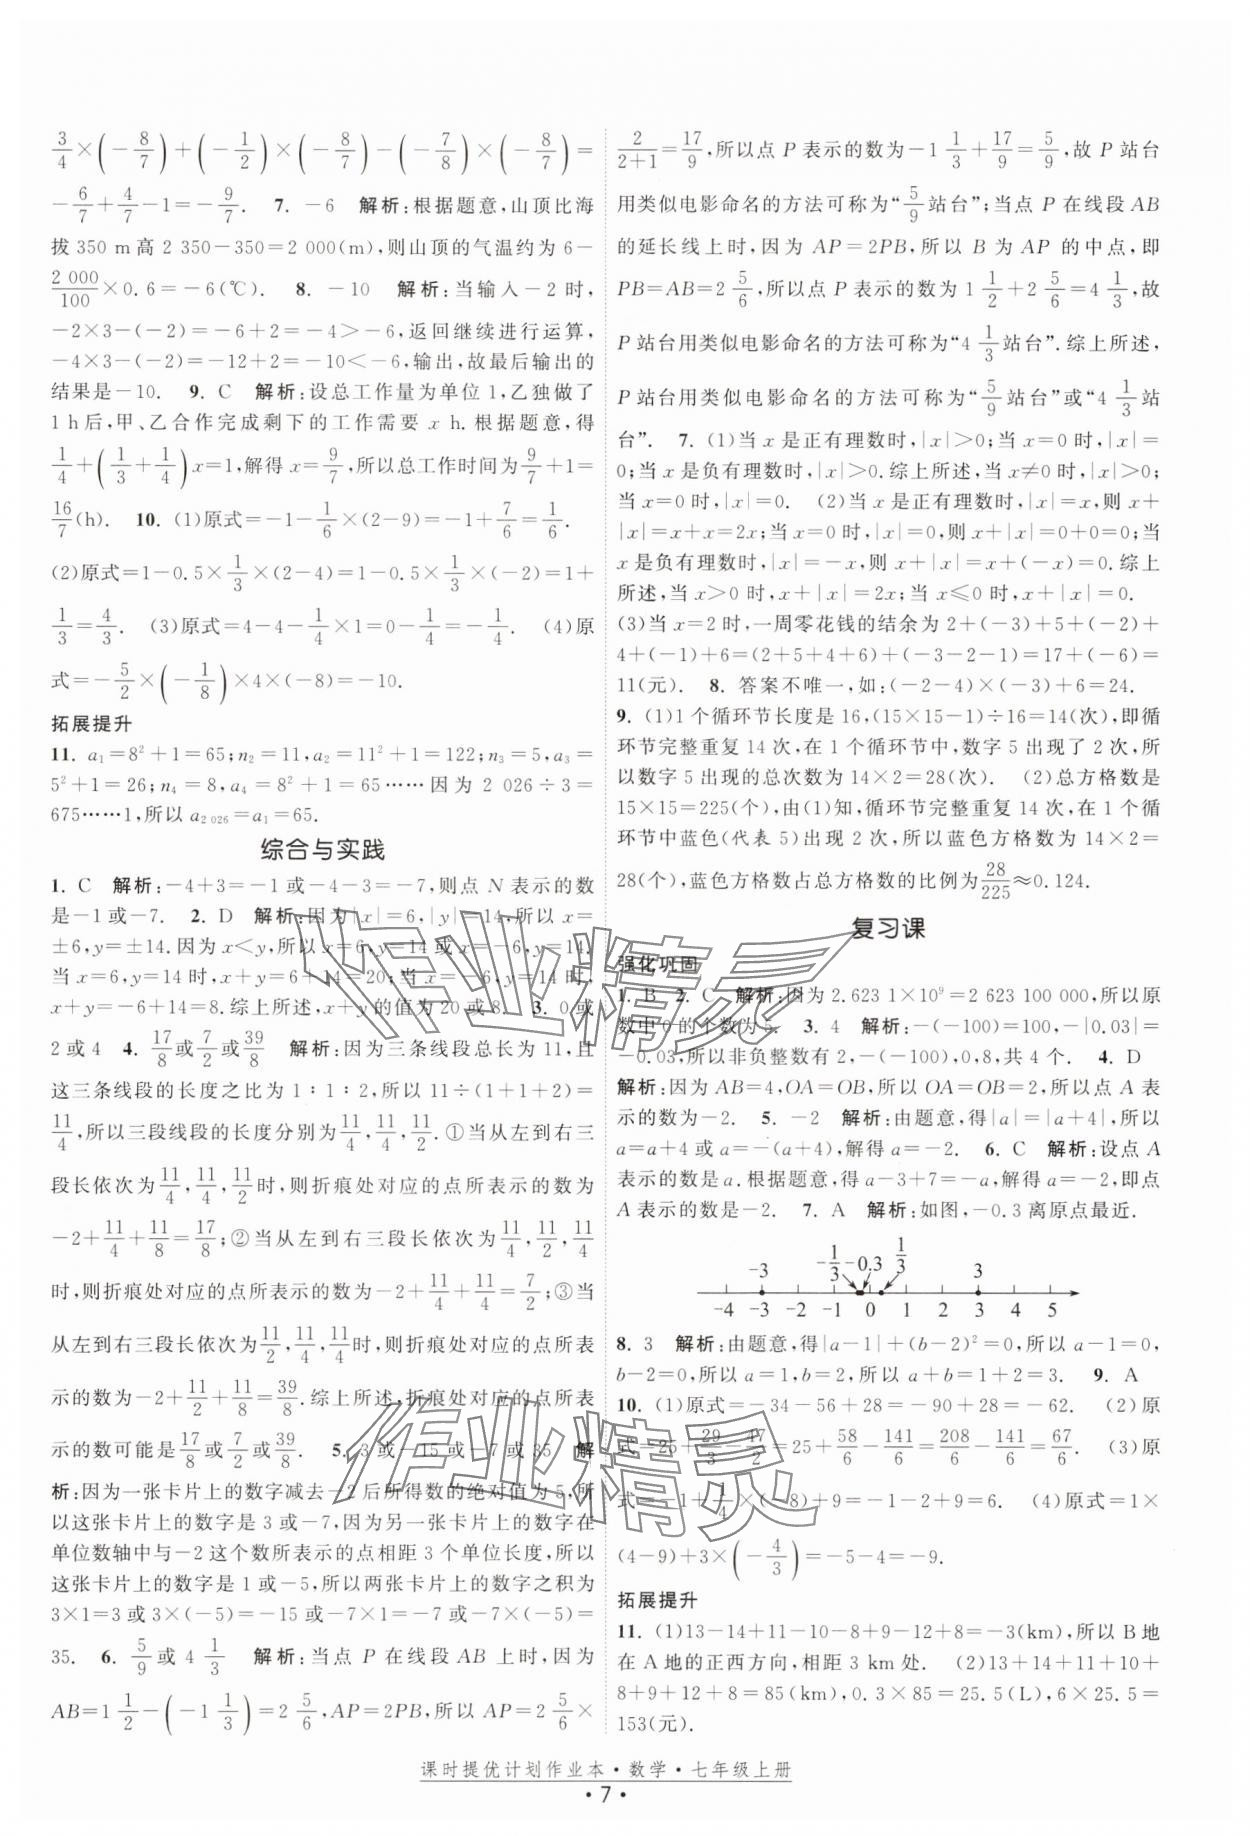 3/4×(-8/7)+(-1/2)×(-8/7)-(-7/8)×(-8/7)=
-6/7+4/7-1=-9/7. 7. -6 解析:根据题意,山顶比海
拔350 m高2 350-350=2 000(m),则山顶的气温约为6-
2 000/100×0.6=-6(℃). 8. -10 解析:当输入-2时,
-2×3-(-2)=-6+2=-4>-6,返回继续进行运算,
-4×3-(-2)=-12+2=-10<-6,输出,故最后输出的
结果是-10. 9. C 解析:设总工作量为单位1,乙独做了
1 h后,甲、乙合作完成剩下的工作需要x h.根据题意,得
1/4+(1/3+1/4)x=1,解得x=9/7,所以总工作时间为9/7+1=
16/7(h). 10. (1)原式=-1-1/6×(2-9)=-1+7/6=1/6.
(2)原式=1-0.5×1/3×(2-4)=1-0.5×1/3×(-2)=1+
1/3=4/3. (3)原式=4-4-1/4×1=0-1/4=-1/4. (4)原
式=-5/2×(-1/8)×4×(-8)=-10.
拓展提升
11. a₁=8²+1=65;n₂=11,a₂=11²+1=122;n₃=5,a₃=
5²+1=26;n₄=8,a₄=8²+1=65……因为2 026÷3=
675……1,所以a₂ ₀₂₆=a₁=65.
综合与实践
1. C 解析:-4+3=-1或-4-3=-7,则点N表示的数
是-1或-7. 2. D 解析:因为|x|=6,|y|=14,所以x=
±6,y=±14.因为x<y,所以x=6,y=14或x=-6,y=14.
当x=6,y=14时,x+y=6+14=20;当x=-6,y=14时,
x+y=-6+14=8.综上所述,x+y的值为20或8. 3. 0或
2或4 4. 17/8或7/2或39/8 解析:因为三条线段总长为11,且
这三条线段的长度之比为1∶1∶2,所以11÷(1+1+2)=
11/4,所以三段线段的长度分别为11/4,11/4,11/2.①当从左到右三
段长依次为11/4,11/4,11/2时,则折痕处对应的点所表示的数为
-2+11/4+11/8=17/8;②当从左到右三段长依次为11/4,11/2,11/4
时,则折痕处对应的点所表示的数为-2+11/4+11/4=7/2;③当
从左到右三段长依次为11/2,11/4,11/4时,则折痕处对应的点所表
示的数为-2+11/2+11/8=39/8.综上所述,折痕处对应的点所表
示的数可能是17/8或7/2或39/8. 5. 3或-15或-7或35 解
析:因为一张卡片上的数字减去-2后所得数的绝对值为5,所
以这张卡片上的数字是3或-7,因为另一张卡片上的数字在
单位数轴中与-2这个数所表示的点相距3个单位长度,所以
这张卡片上的数字是1或-5,所以两张卡片上的数字之积为
3×1=3或3×(-5)=-15或-7×1=-7或-7×(-5)=
35. 6. 5/9或4 1/3 解析:当点P在线段AB上时,因为
AB=1 1/2-(-1 1/3)=2 5/6,AP=2PB,所以AP=2 5/6×
2/(2+1)=17/9,所以点P表示的数为-1 1/3+17/9=5/9,故P站台
用类似电影命名的方法可称为“5/9站台”;当点P在线段AB
的延长线上时,因为AP=2PB,所以B为AP的中点,即
PB=AB=2 5/6,所以点P表示的数为1 1/2+2 5/6=4 1/3,故
P站台用类似电影命名的方法可称为“4 1/3站台”.综上所述,
P站台用类似电影命名的方法可称为“5/9站台”或“4 1/3站
台”. 7. (1)当x是正有理数时,|x|>0;当x=0时,|x|=
0;当x是负有理数时,|x|>0.综上所述,当x≠0时,|x|>0;
当x=0时,|x|=0. (2)当x是正有理数时,|x|=x,则x+
|x|=x+x=2x;当x=0时,|x|=0,则x+|x|=0+0=0;当
x是负有理数时,|x|=-x,则x+|x|=x+(-x)=0.综上
所述,当x>0时,x+|x|=2x;当x≤0时,x+|x|=0.
(3)当x=2时,一周零花钱的结余为2+(-3)+5+(-2)+
4+(-1)+6=(2+5+4+6)+(-3-2-1)=17+(-6)=
11(元). 8. 答案不唯一,如:(-2-4)×(-3)+6=24.
9. (1)1个循环节长度是16,(15×15-1)÷16=14(次),即循
环节完整重复14次,在1个循环节中,数字5出现了2次,所
以数字5出现的总次数为14×2=28(次). (2)总方格数是
15×15=225(个),由(1)知,循环节完整重复14次,在1个循
环节中蓝色(代表5)出现2次,所以蓝色方格数为14×2=
28(个),蓝色方格数占总方格数的比例为28/225≈0.124.
复习课
强化巩固
1. B 2. C 解析:因为2.623 1×10⁹=2 623 100 000,所以原
数中0的个数为5. 3. 4 解析:-(-100)=100,-|0.03|=
-0.03,所以非负整数有2,-(-100),0,8,共4个. 4. D
解析:因为AB=4,OA=OB,所以OA=OB=2,所以点A表
示的数为-2. 5. -2 解析:由题意,得|a|=|a+4|,所以
a=a+4或a=-(a+4),解得a=-2. 6. C 解析:设点A
表示的数是a.根据题意,得a-3+7=-a,解得a=-2,即点
A表示的数是-2. 7. A 解析:如图,-0.3离原点最近.
-3 -1/3 -0.3 1/3 3
-4 -3 -2 -1 0 1 2 3 4 5
8. 3 解析:由题意,得|a-1|+(b-2)²=0,所以a-1=0,
b-2=0,所以a=1,b=2,所以a+b=1+2=3. 9. A
10. (1)原式=-34-56+28=-90+28=-62. (2)原
式=25+29/3-47/2=25+58/6-141/6=208/6-141/6=67/6. (3)原
式=-1+1/4×(-8)+9=-1-2+9=6. (4)原式=1×
(4-9)+3×(-4/3)=-5-4=-9.
拓展提升
11. (1)13-14+11-10-8+9-12+8=-3(km),所以B地
在A地的正西方向,相距3 km处. (2)13+14+11+10+
8+9+12+8=85(km),0.3×85=25.5(L),6×25.5=
153(元).
作业精灵
作业精灵
课时提优计划作业本·数学·七年级上册
·7·